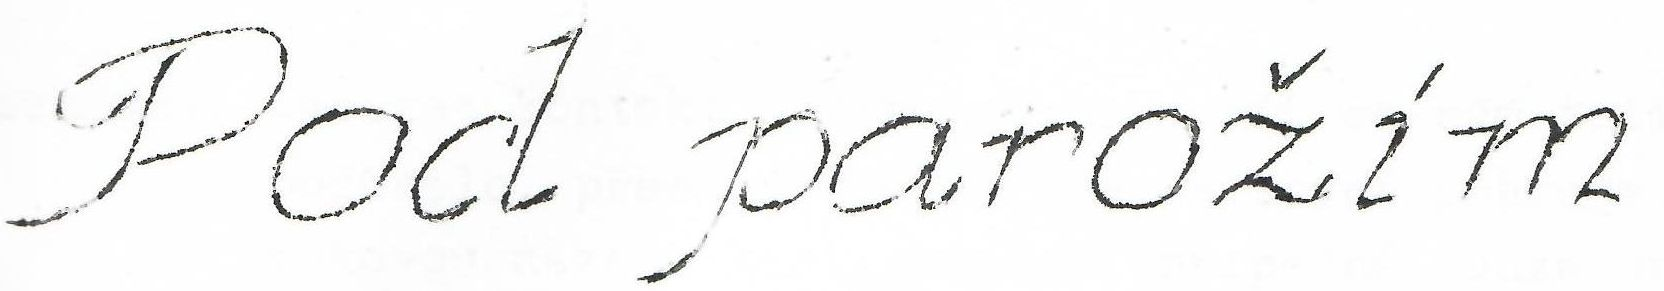 Pod parožím